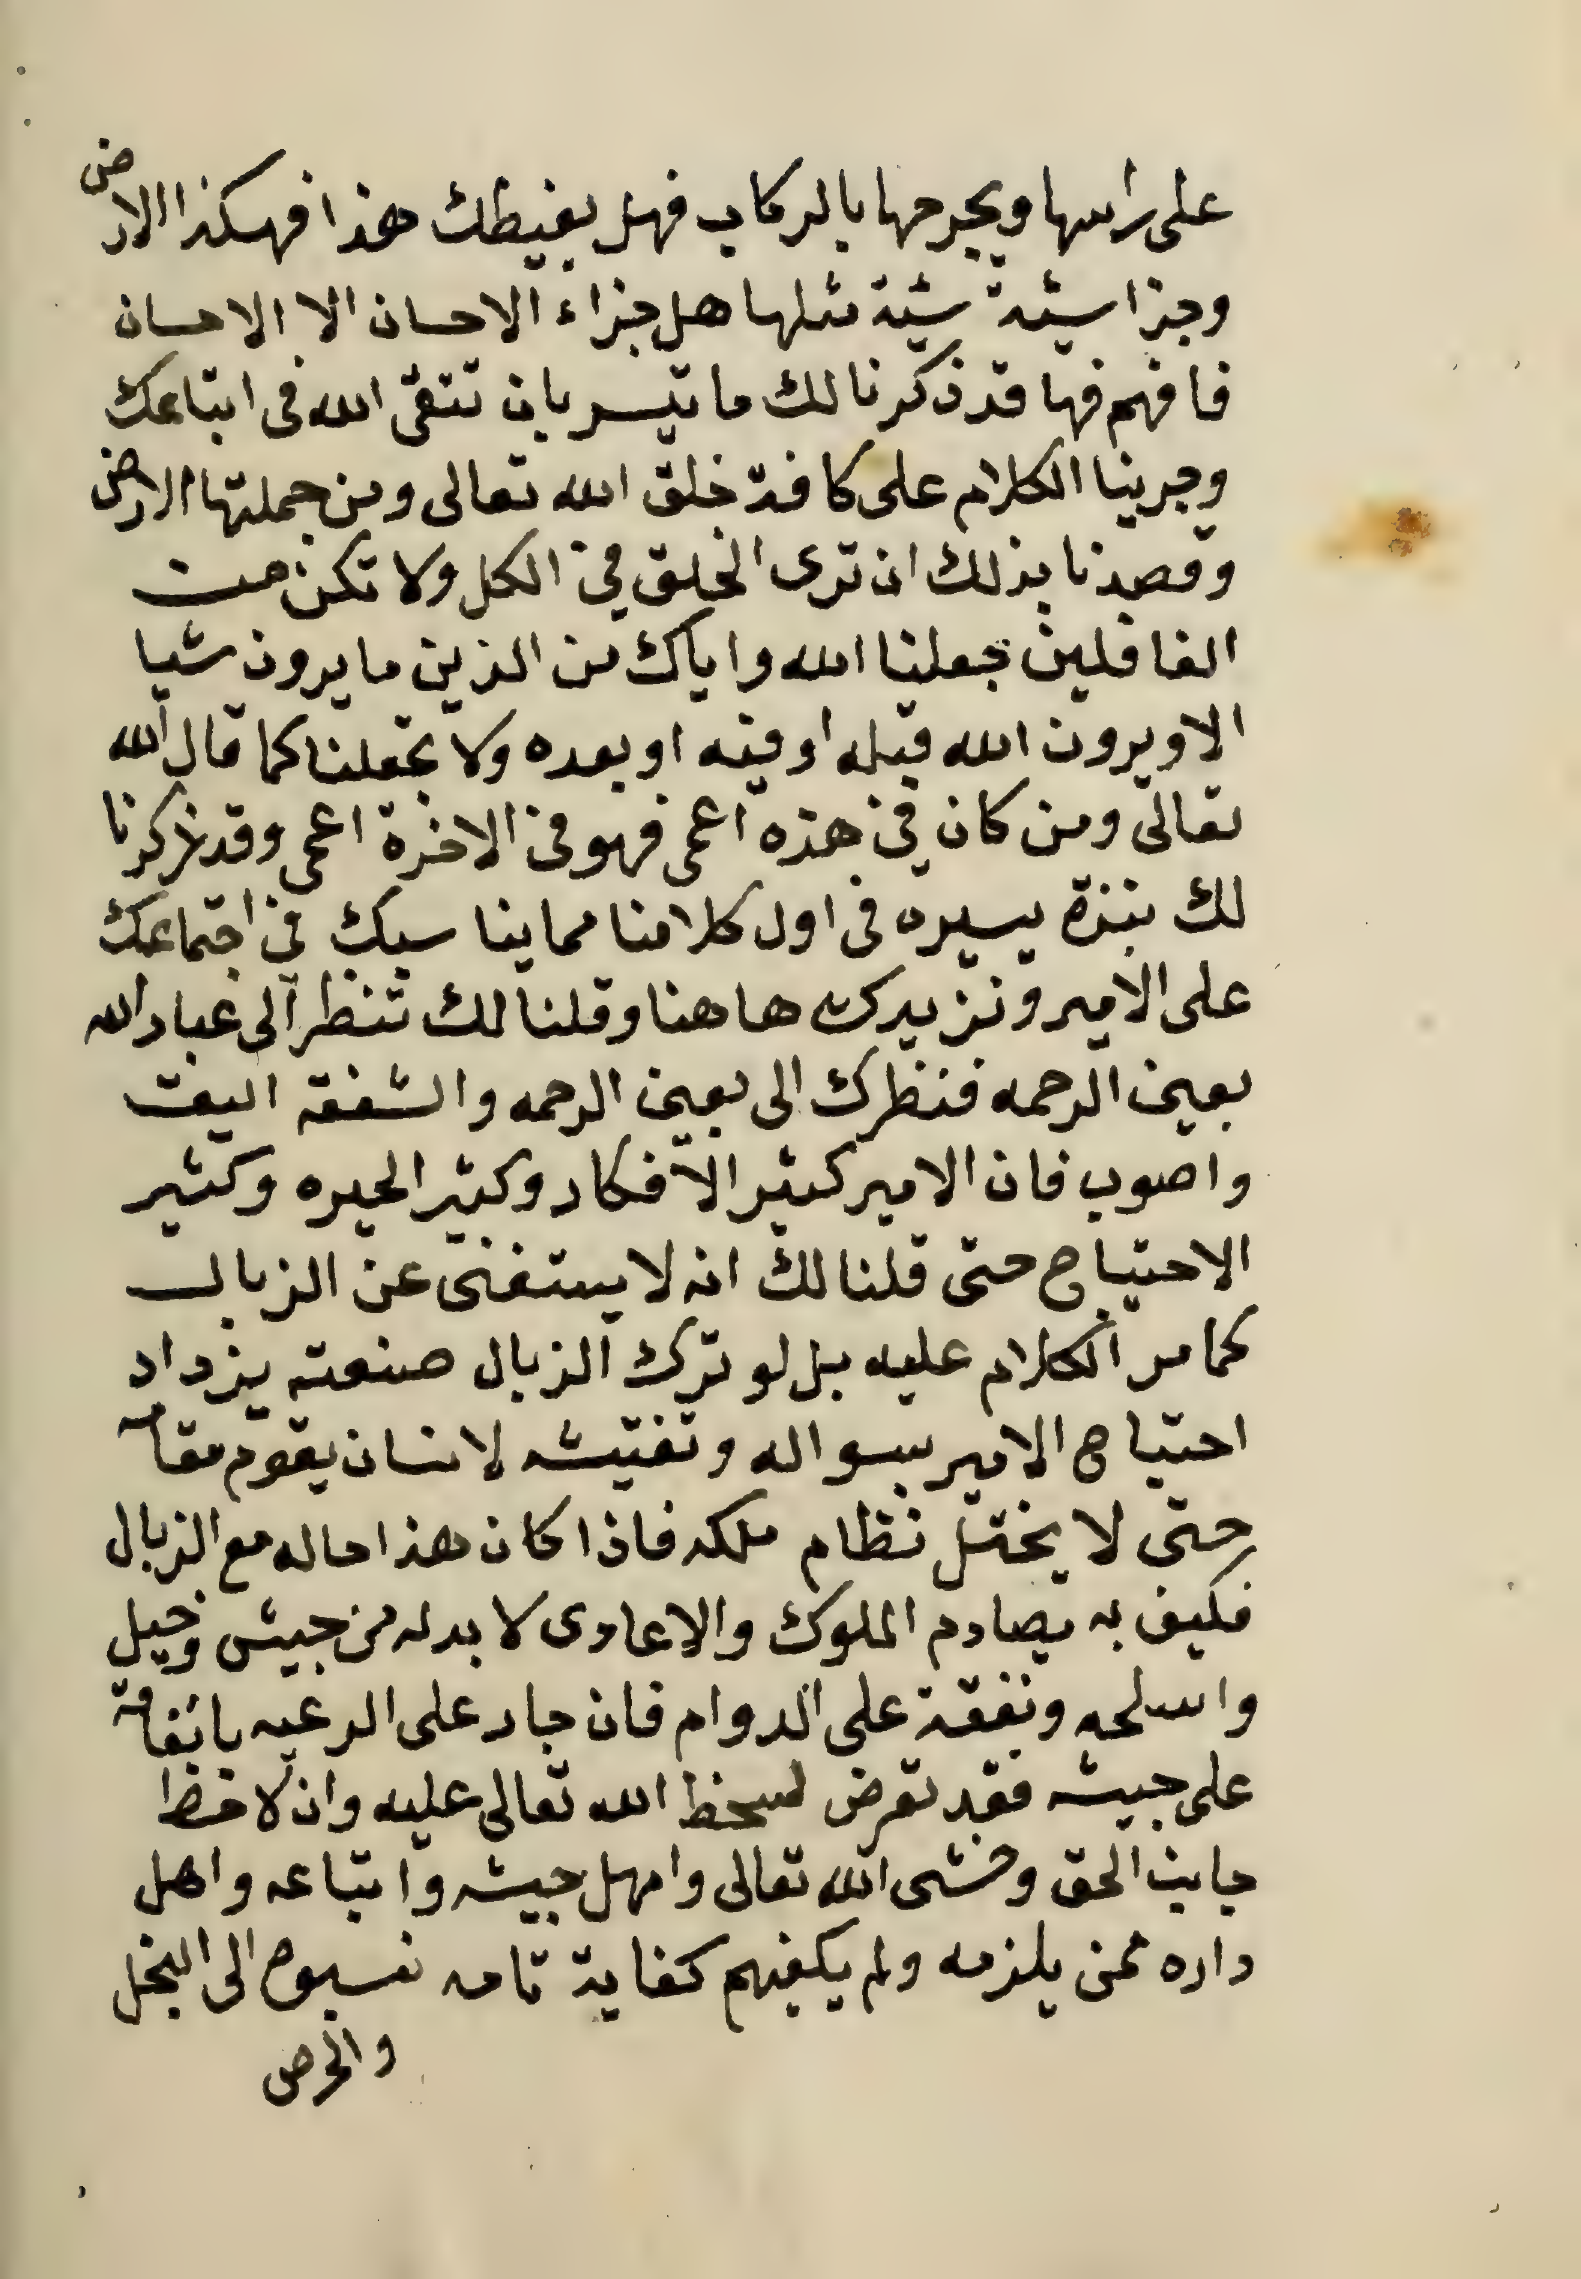 على راسها ويجرحها بالركاب فهل يغيظك هذا فهكذا الارض
وجزا سيئة سيئة مثلها هل جزاء الاحسان الا الاحسان
فافهم فها قد ذكرنا لك ما تيسر بان تتقى الله فى اتباعك
وجرينا الكلام على كافة خلق الله تعالى ومن جملتها الارض
وقصدنا بذلك ان ترى الخلق فى الكل ولا تكن من
الغافلين جعلنا الله واياك من الذين ما يرون شيا
الا ويرون الله قبله او فيه او بعده ولا تجعلنا كما قال الله
تعالى ومن كان فى هذه اعمى فهو فى الاخرة اعمى وقد ذكرنا
لك نبذة يسيره فى اول كلامنا مما يناسبك فى اجتماعك
على الامير ونزيدك هاهنا وقلنا لك تنظر الى عباد الله
بعين الرحمه فنظرك الى بعين الرحمه والشفقه اليق
واصوب فان الامير كثير الافكار وكثير الحيره وكثير
الاحتياج حتى قلنا لك انه لا يستغنى عن الزبال
كما مر الكلام عليه بل لو ترك الزبال صنعته يزداد
احتياج الامير بسواله وتفتيشه لانسان يقوم مقامه
حتى لا يختل نظام ملكه فاذا كان هذا حاله مع الزبال
فكيف به يصادم الملوك والاعادى لا بد له من جيش وخيل
واسلحه ونفقة على الدوام فان جار على الرعيه بانفاقه
على جيشه فقد تعرض لسخط الله تعالى عليه وان لاحظ
جانب الحق وخشى الله تعالى وامهل جيشه واتباعه واهل
داره ممن يلزمه ولم يكفيهم كفاية تامه نسبوه الى البخل
والحرص